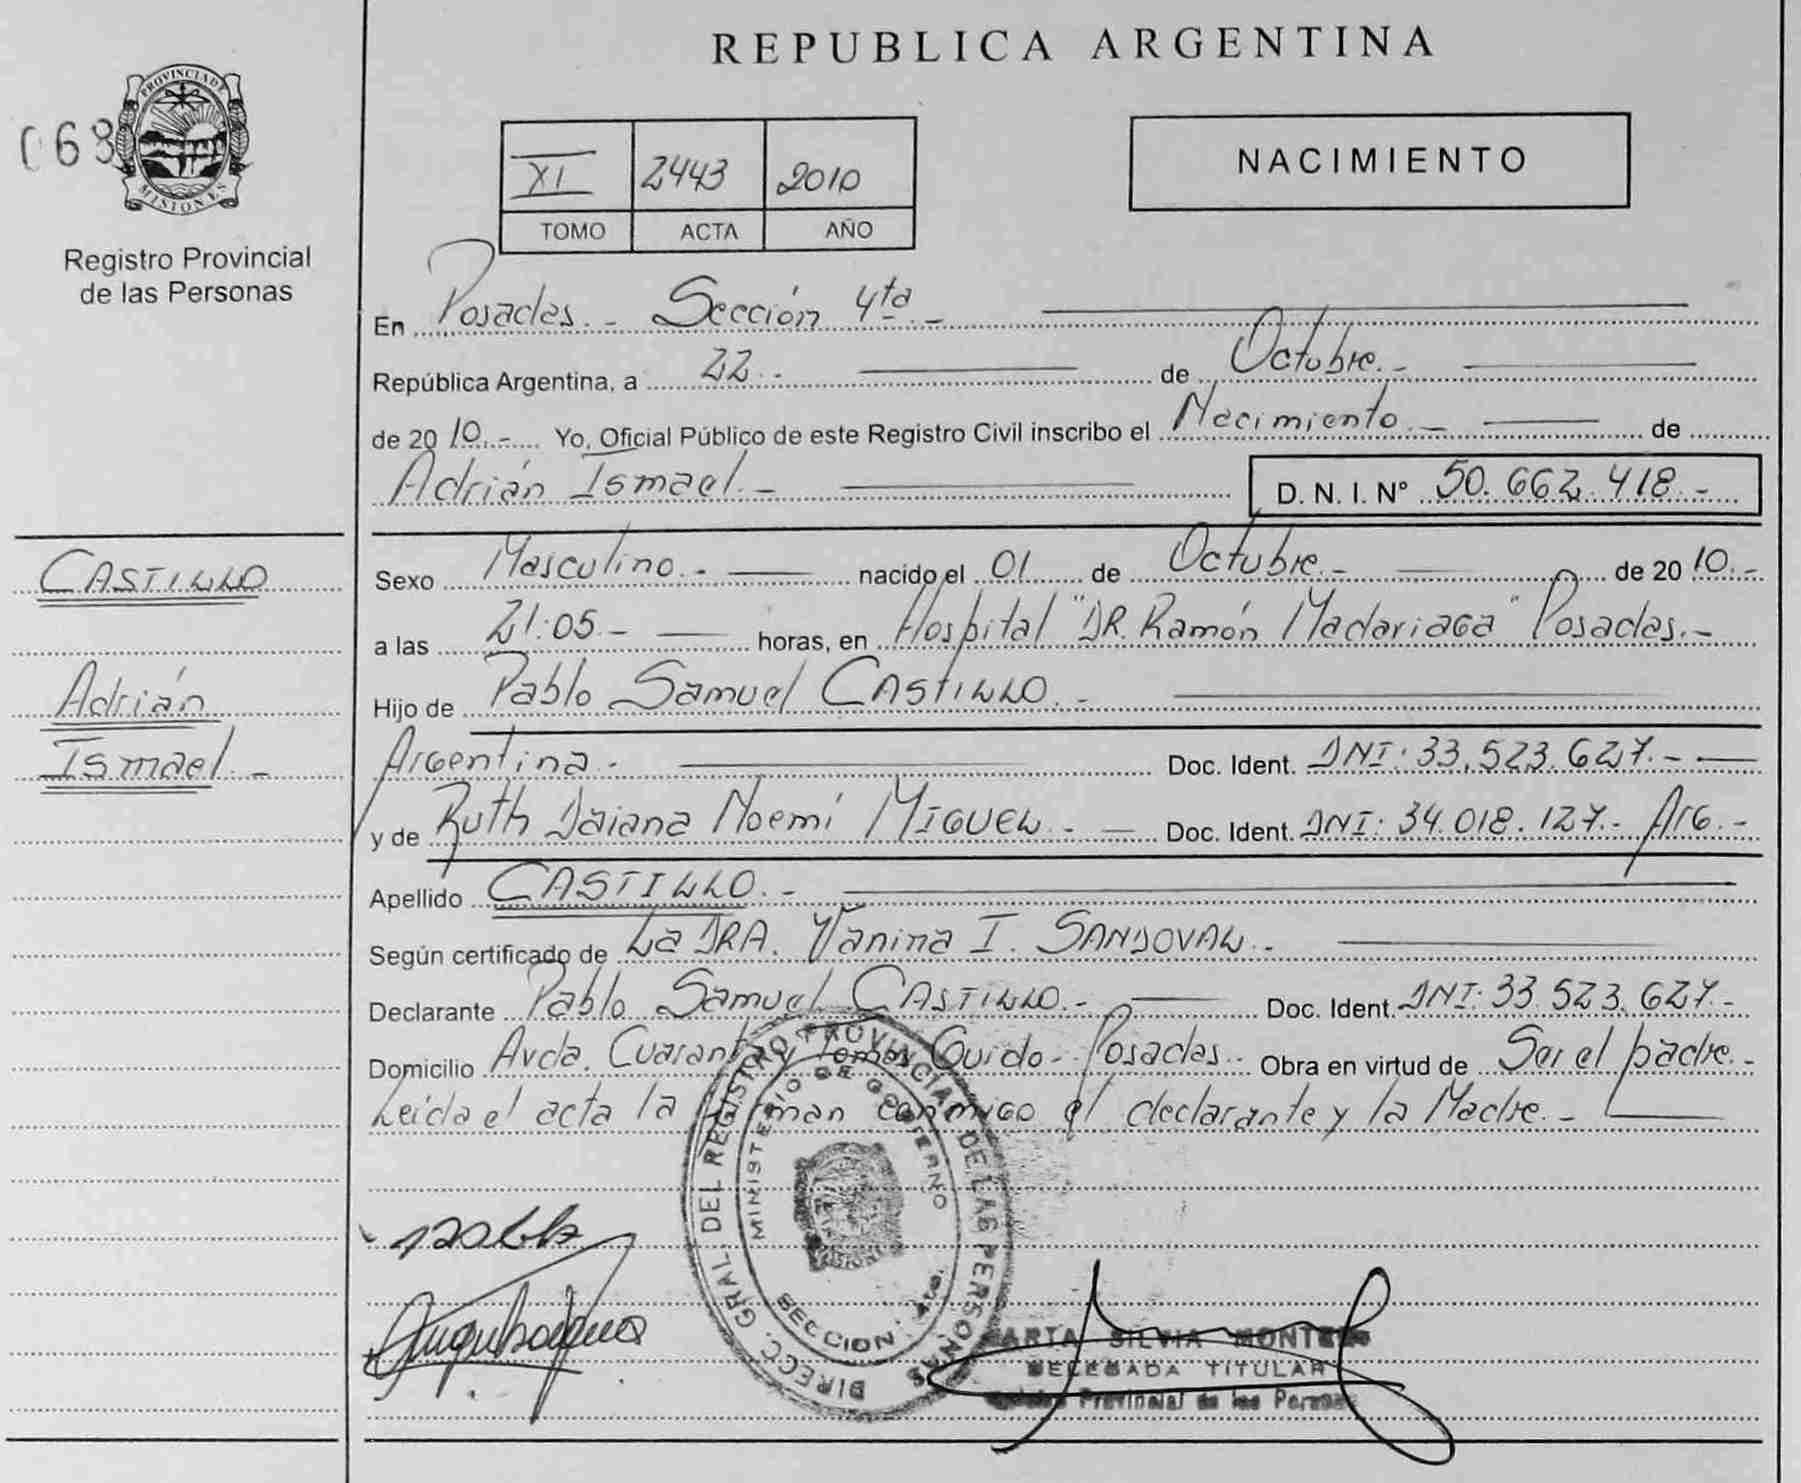 REPUBLICA ARGENTINA
PROVINCIA DE
MISIONES
068
Registro Provincial
de las Personas
XI 2443 2010
TOMO ACTA AÑO
NACIMIENTO
En Posadas.- Sección 4ta.-
República Argentina, a 22.- de Octubre.-
de 2010.- Yo, Oficial Público de este Registro Civil inscribo el Nacimiento.- de
Adrián Ismael.- D. N. I. Nº 50.662.418.-
CASTILLO
Adrián
Ismael.-
Sexo Masculino.- nacido el 01 de Octubre.- de 2010.-
a las 21:05.- horas, en Hospital "DR. Ramón Madariaga" Posadas.-
Hijo de Pablo Samuel CASTILLO.-
Argentina.- Doc. Ident. DNI: 33.523.627.-
y de Ruth Daiana Noemí MIGUEL.- Doc. Ident. DNI: 34.018.127.- Arg.-
Apellido CASTILLO.-
Según certificado de La DRA. Vanina I. SANDOVAL.-
Declarante Pablo Samuel CASTILLO.- Doc. Ident. DNI: 33.523.627.-
Domicilio Avda. Cuarenta y Tomas Guido - Posadas.- Obra en virtud de Ser el padre.-
Leída el acta la firman conmigo el declarante y la Madre.-
DIRECC. GRAL. DEL REGISTRO PROVINCIAL DE LAS PERSONAS
MINISTERIO DE GOBIERNO
SECCION 4ta.
MARTA SILVIA
DELEGADA TITULAR
Provincial de las Personas